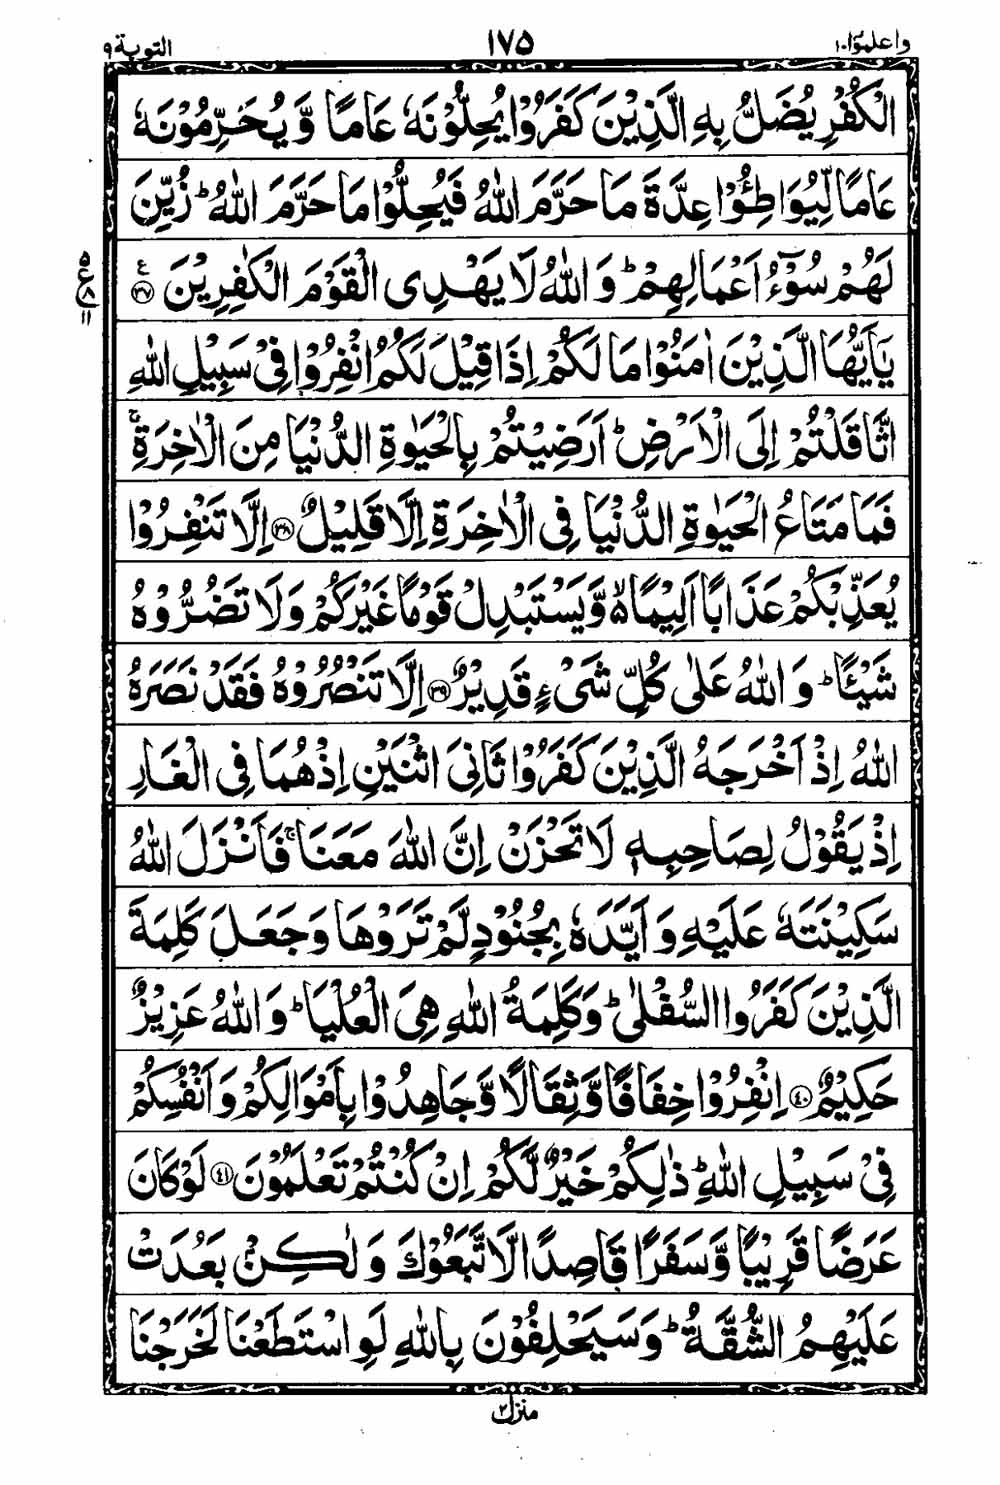 واعلموٓا ١٠ ١٧٥ التوبة ٩
الْكُفْرِ يُضَلُّ بِهِ الَّذِيْنَ كَفَرُوْا يُحِلُّوْنَهٗ عَامًا وَّ يُحَرِّمُوْنَهٗ
عَامًا لِّيُوَاطِـُٔوْا عِدَّةَ مَا حَرَّمَ اللّٰهُ فَيُحِلُّوْا مَا حَرَّمَ اللّٰهُ ؕ زُيِّنَ
لَهُمْ سُوْٓءُ اَعْمَالِهِمْ ؕ وَ اللّٰهُ لَا يَهْدِی الْقَوْمَ الْكٰفِرِيْنَ ﴿٣٧﴾ ع
٥ ع ٨ ١١
يٰۤاَيُّهَا الَّذِيْنَ اٰمَنُوْا مَا لَكُمْ اِذَا قِيْلَ لَكُمُ انْفِرُوْا فِیْ سَبِيْلِ اللّٰهِ
اثَّاقَلْتُمْ اِلَى الْاَرْضِ ؕ اَرَضِيْتُمْ بِالْحَيٰوةِ الدُّنْيَا مِنَ الْاٰخِرَةِ ۚ
فَمَا مَتَاعُ الْحَيٰوةِ الدُّنْيَا فِی الْاٰخِرَةِ اِلَّا قَلِيْلٌ ﴿٣٨﴾ اِلَّا تَنْفِرُوْا
يُعَذِّبْكُمْ عَذَابًا اَلِيْمًا ۙ۬ وَّ يَسْتَبْدِلْ قَوْمًا غَيْرَكُمْ وَ لَا تَضُرُّوْهُ
شَيْـًٔا ؕ وَ اللّٰهُ عَلٰى كُلِّ شَیْءٍ قَدِيْرٌ ﴿٣٩﴾ اِلَّا تَنْصُرُوْهُ فَقَدْ نَصَرَهُ
اللّٰهُ اِذْ اَخْرَجَهُ الَّذِيْنَ كَفَرُوْا ثَانِیَ اثْنَيْنِ اِذْ هُمَا فِی الْغَارِ
اِذْ يَقُوْلُ لِصَاحِبِهٖ لَا تَحْزَنْ اِنَّ اللّٰهَ مَعَنَا ۚ فَاَنْزَلَ اللّٰهُ
سَكِيْنَتَهٗ عَلَيْهِ وَ اَيَّدَهٗ بِجُنُوْدٍ لَّمْ تَرَوْهَا وَ جَعَلَ كَلِمَةَ
الَّذِيْنَ كَفَرُوا السُّفْلٰى ؕ وَ كَلِمَةُ اللّٰهِ هِیَ الْعُلْيَا ؕ وَ اللّٰهُ عَزِيْزٌ
حَكِيْمٌ ﴿٤٠﴾ اِنْفِرُوْا خِفَافًا وَّ ثِقَالًا وَّ جَاهِدُوْا بِاَمْوَالِكُمْ وَ اَنْفُسِكُمْ
فِیْ سَبِيْلِ اللّٰهِ ؕ ذٰلِكُمْ خَيْرٌ لَّكُمْ اِنْ كُنْتُمْ تَعْلَمُوْنَ ﴿٤١﴾ لَوْ كَانَ
عَرَضًا قَرِيْبًا وَّ سَفَرًا قَاصِدًا لَّاتَّبَعُوْكَ وَ لٰكِنْۢ بَعُدَتْ
عَلَيْهِمُ الشُّقَّةُ ؕ وَ سَيَحْلِفُوْنَ بِاللّٰهِ لَوِ اسْتَطَعْنَا لَخَرَجْنَا
منزل ٢